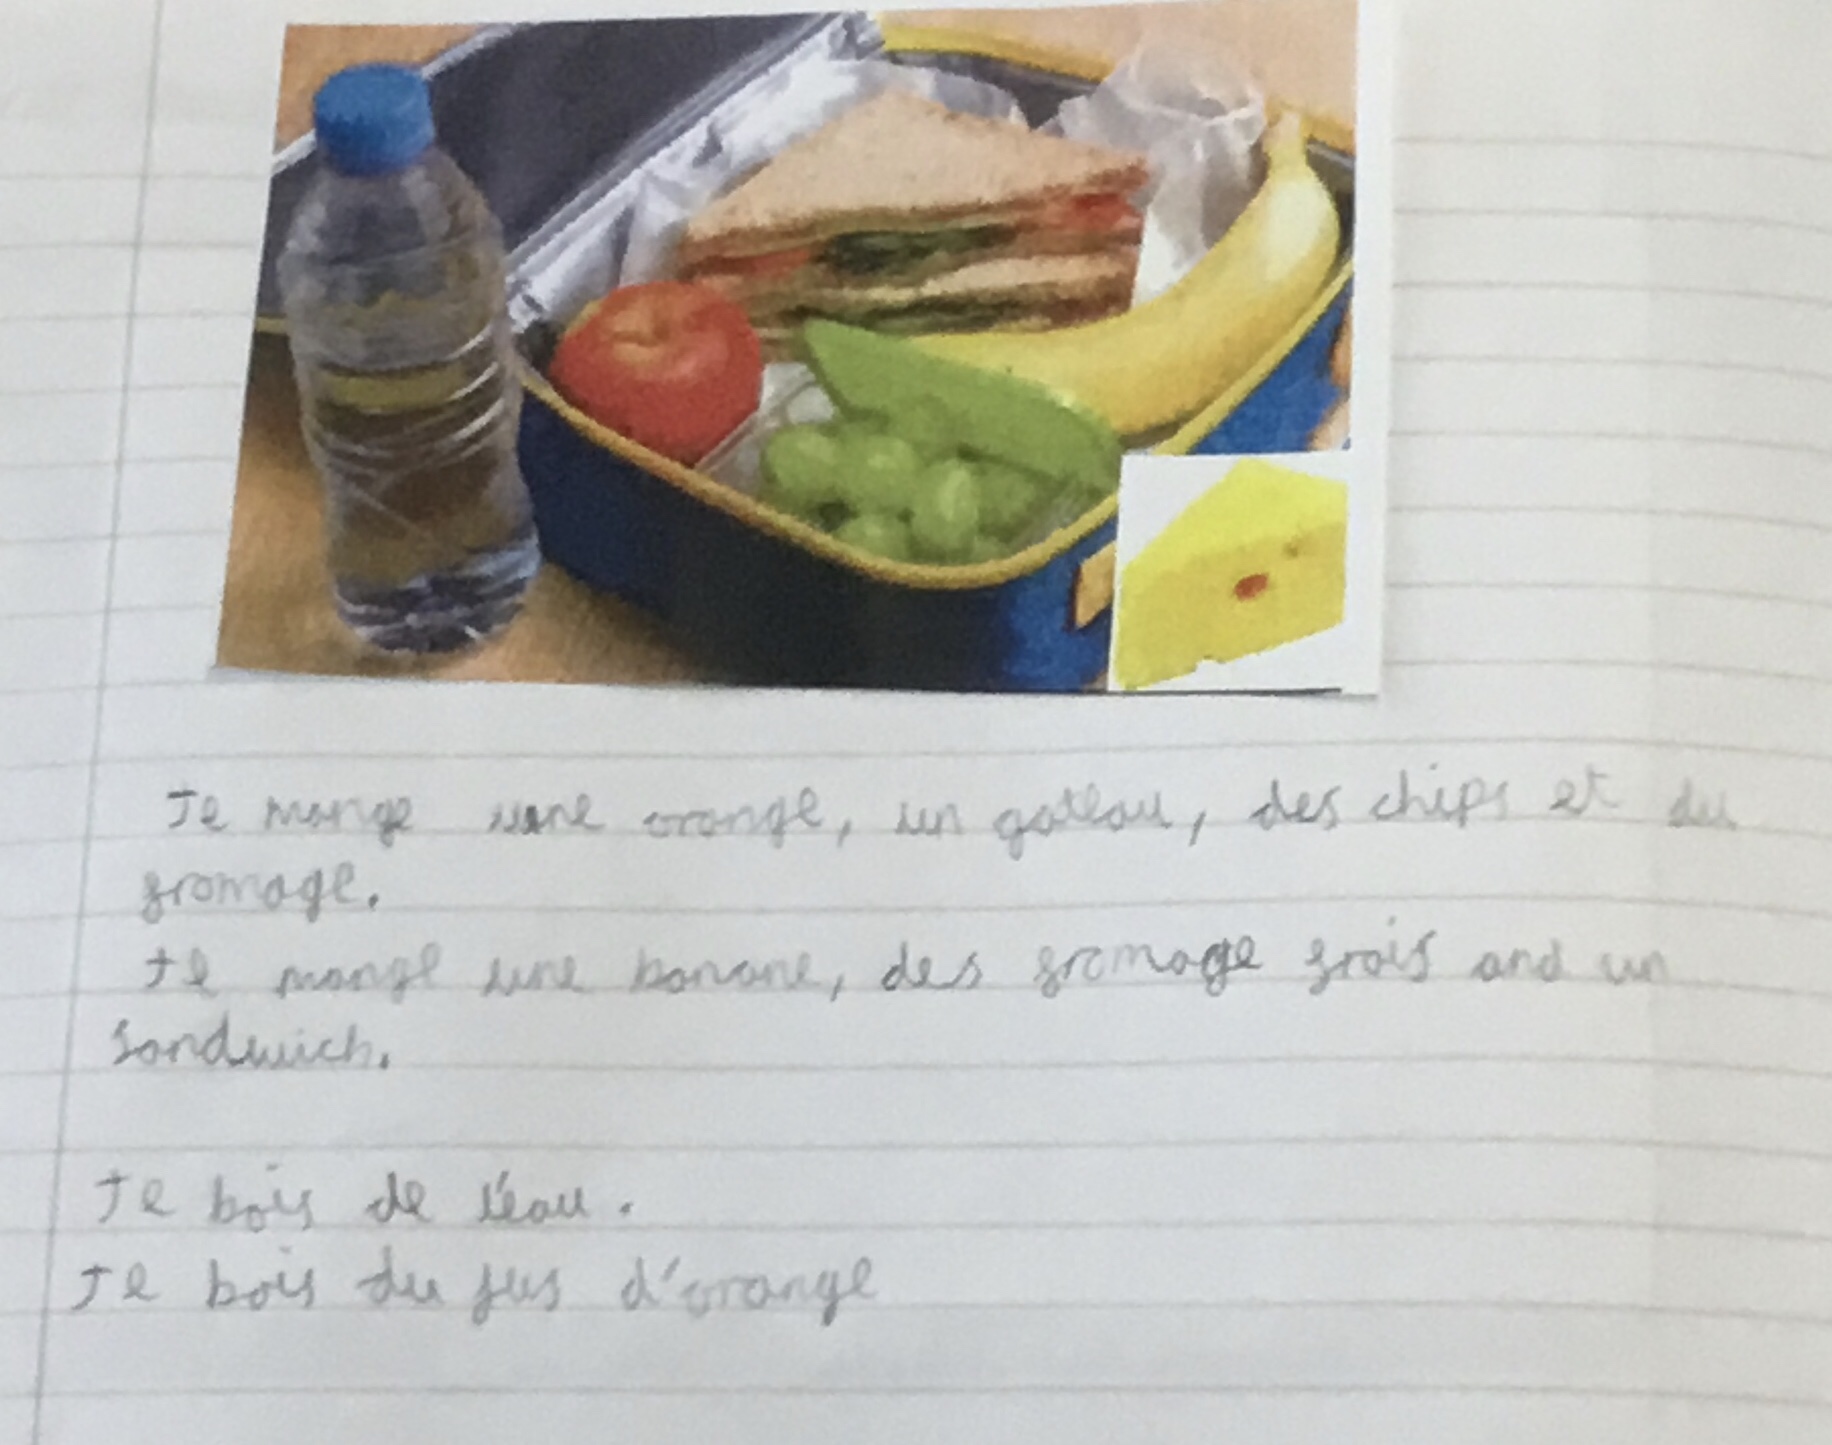 Je mange une orange, un gateau, des chips et du
fromage.
Je mange une banane, des fromage frais and un
sandwich.
Je bois de l'eau.
Je bois du jus d'orange